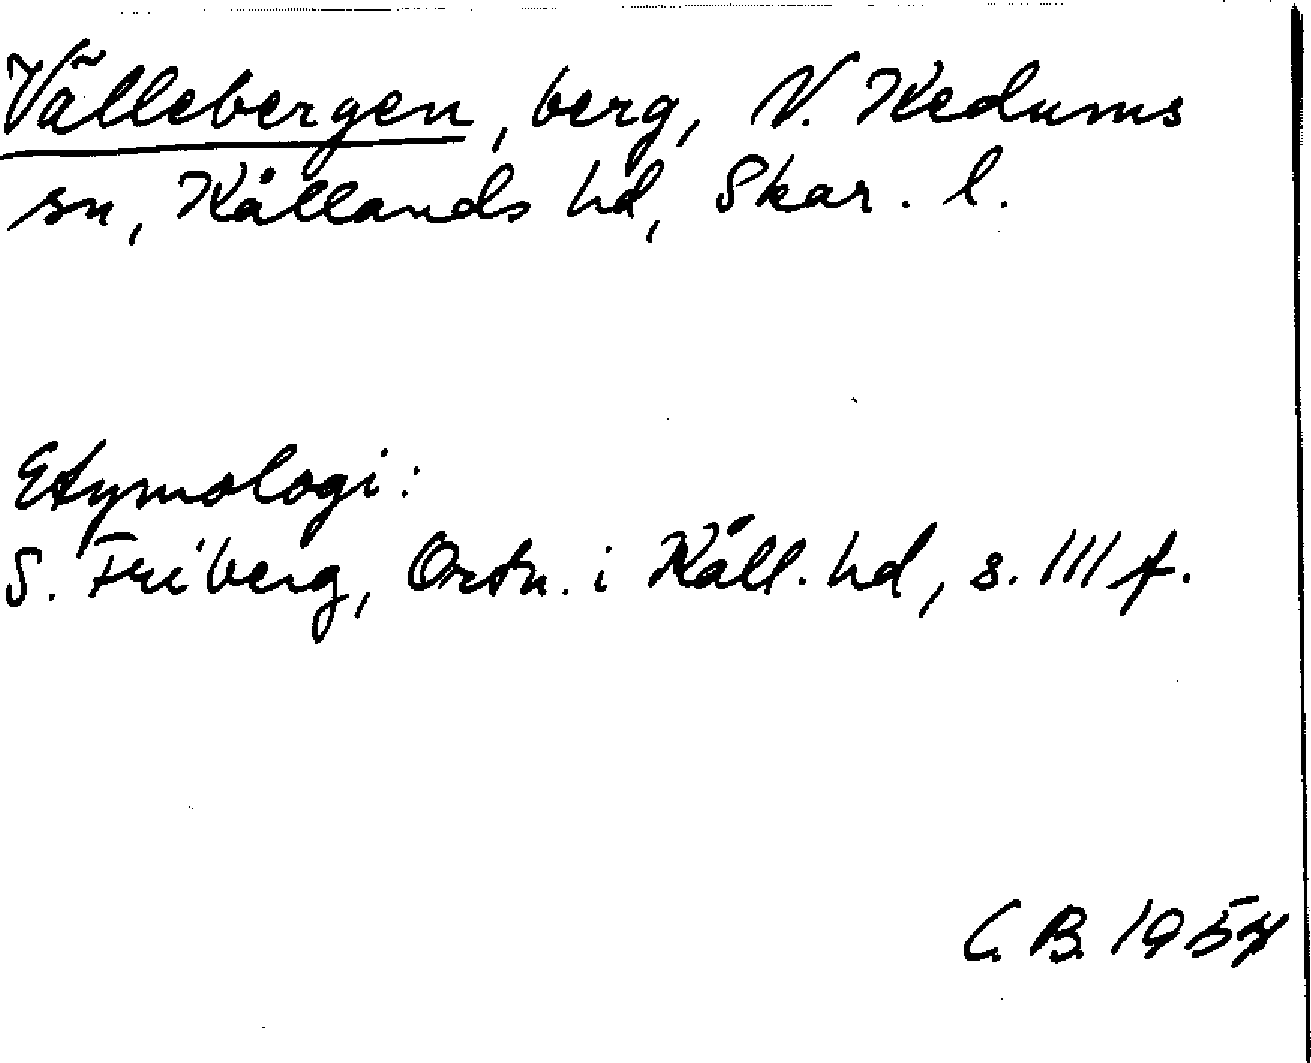 Vällebergen, berg, N. Kedums
sn, Kållands hd, Skar. l.
Etymologi:
S. Friberg, Ortn. i Kåll. hd, s. 111 f.
C. B. 1957